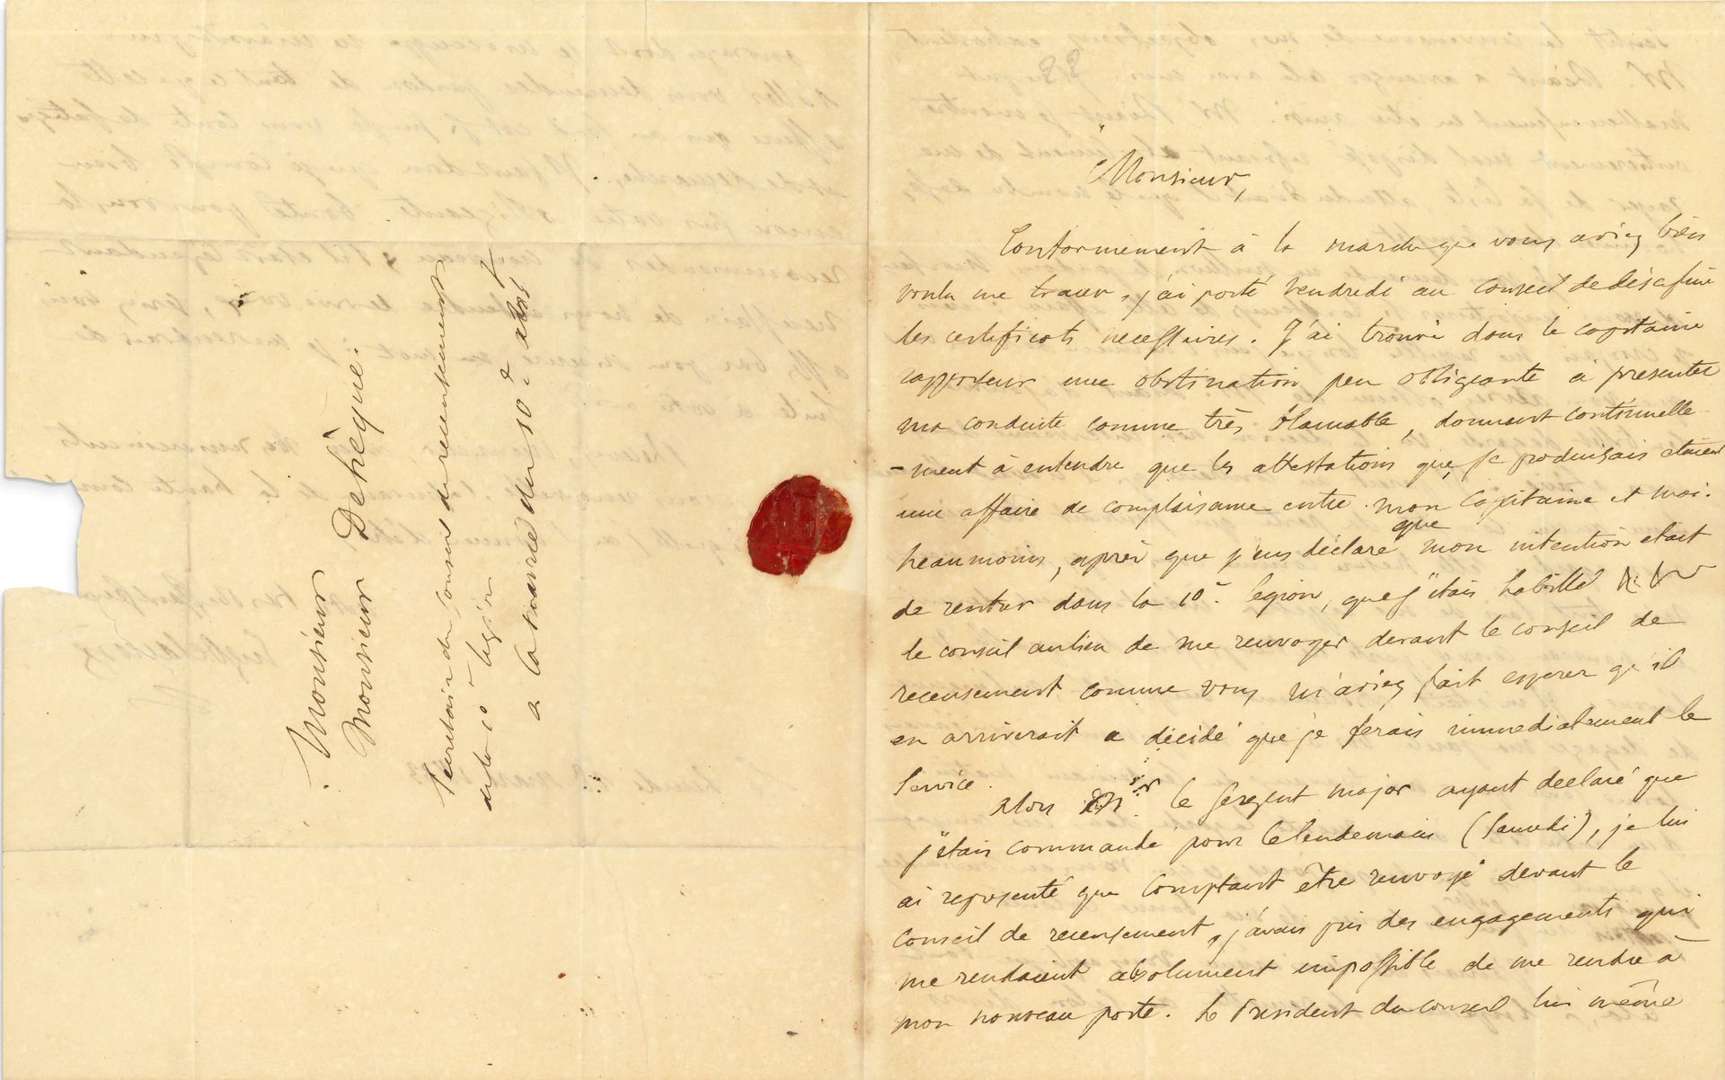 Monsieur
Monsieur Dehèque.
Secretaire du Conseil de recensement
de la 10e légion
a la mairie du 10e arrt
Monsieur,
Conformement à la marche que vous aviez bien
voulu me tracer, j'ai porté vendredi au Conseil de discipline
les certificats necessaires. J'ai trouvé dans le capitaine
rapporteur une obstination peu obligeante à presenter
ma conduite comme très blamable, donnant continuelle
-ment à entendre que les attestations que je produisais etaient
une affaire de complaisance entre mon Capitaine et moi.
Neanmoins, après que j'eus déclaré que mon intention etait
de rentrer dans la 10e légion, que j'étais habillé
le conseil au lieu de me renvoyer devant le conseil de
recensement comme vous m'aviez fait esperer qu'il
en arriverait a décidé que je ferais immediatement le
Service.
Alors le sergent major ayant declaré que
j'étais commandé pour le lendemain (Samedi), je lui
ai representé que Comptant être renvoyé devant le
Conseil de recensement, j'avais pris des engagements qui
me rendaient absolument impossible de me rendre à
mon nouveau poste. Le President du conseil lui même